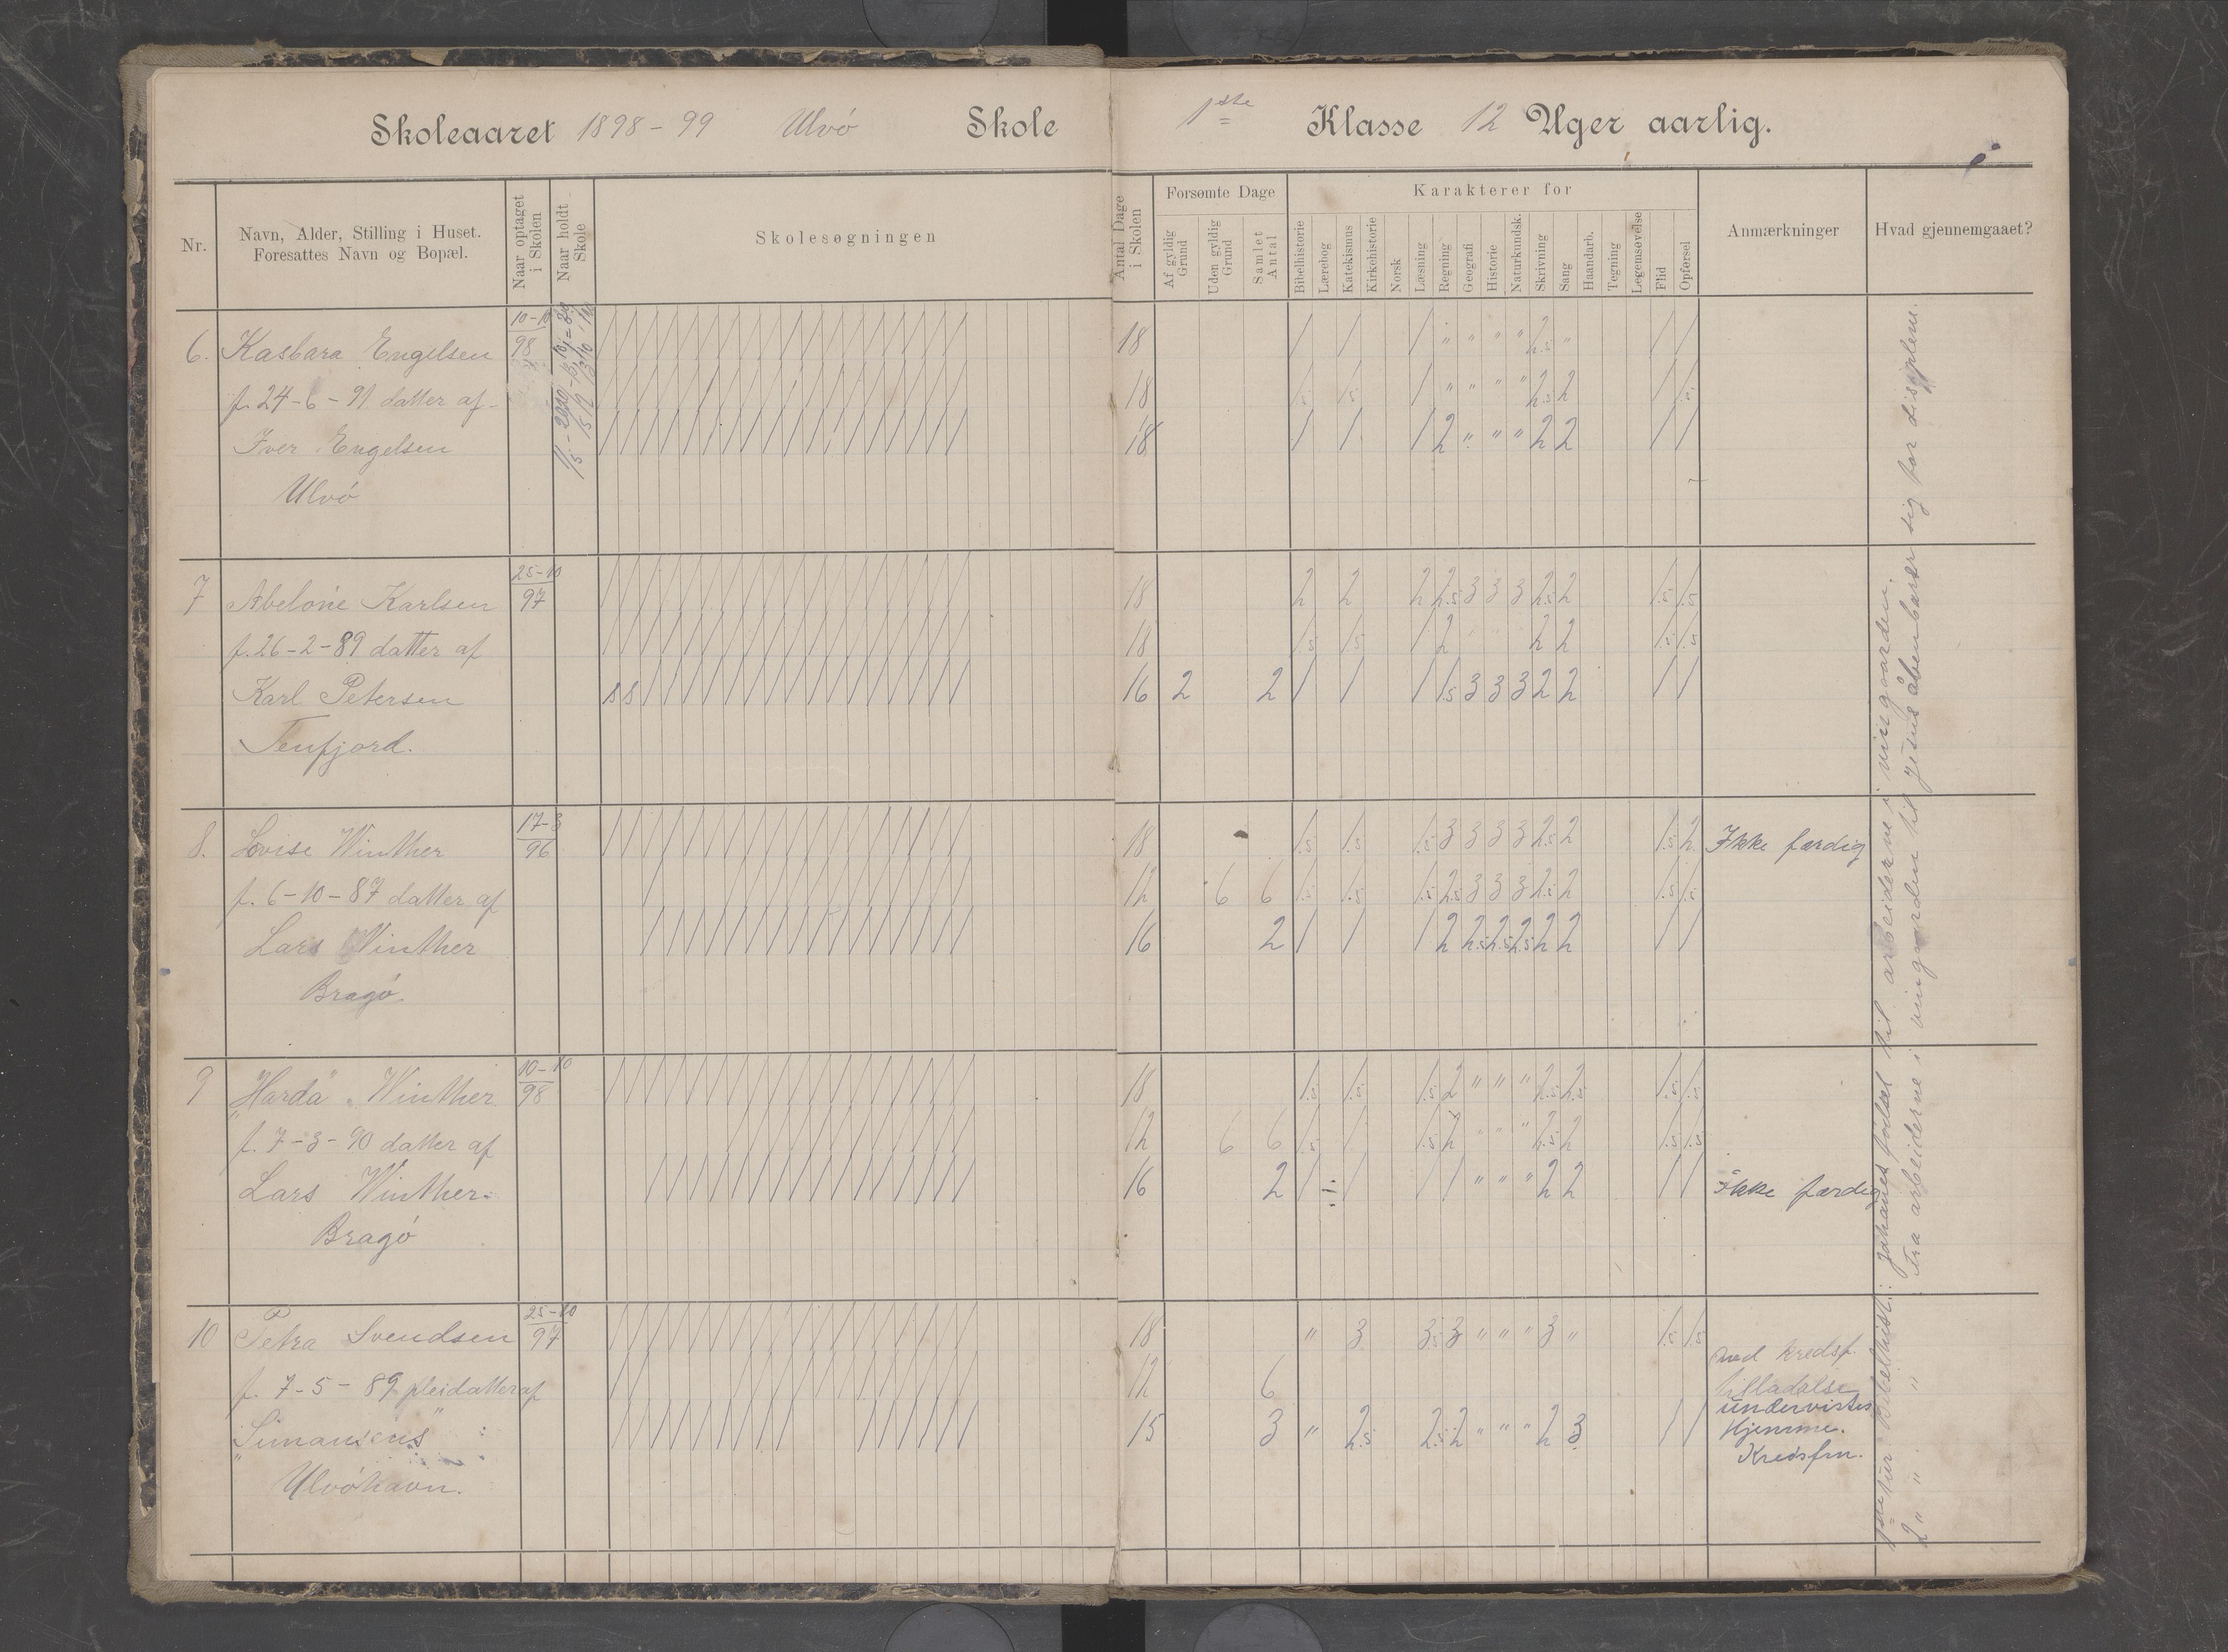 Skoleaaret 1898-99 Ulvó Skole
1ste Klasse 12 Uger aarlig.
Nr.
Navn, Alder, Stilling i Huset.
Foresattes Navn og Bopæl.
Naar optaget i Skolen
Naar holdt Skole
Skolesøgningen
Antal Dage i Skolen
Forsømte Dage
Af gyldig Grund
Uden gyldig Grund
Samlet Antal
Karakterer for
Bibelhistorie
Lærebog
Katekismus
Kirkehistorie
Norsk
Læsning
Regning
Geografi
Historie
Naturkundsk.
Skrivning
Sang
Haandarb.
Tegning
Legemsøvelse
Flid
Opførsel
Anmærkninger
Hvad gjennemgaaet?
6. Kasbara Engelsen 10-10 98 18 / / / " " " " 2.5 " / /
f. 24-6-91 datter af 18 1.5 1.5 / " " " " 2.5 2 / 1.5
Iver Engelsen 18 / / / 2 " " " 2 2 / /
Ulvó
7 Abelone Karlsen 25-10 97 18 2 2 2 2.5 3 3 3 2.5 2 1.5 1.5
f. 26-2-89 datter af 18 1.5 1.5 / 2 2 2 1.5 1.5
Karl Petersen s s 16 2 2 / / / 1.5 3 3 3 2 2 / /
Tenfjord.
8. Lovise Winther 17-3 96 18 1.5 1.5 1.5 3 3 3 3 2.5 2 1.5 2 Ikke færdig
f. 6-10-87 datter af 12 6 6 1.5 1.5 1.5 2.5 3 3 3 2.5 2 1.5 1.5
Lars Winther 16 2 / / / 2 2.5 2.5 2.5 2 2 / /
Bragó.
9 "Harda" Winther 10-10 98 18 1.5 1.5 1.5 2 " " " 2.5 2.5 1.5 1.5
f. 7-3-90 datter af 12 6 6 1.5 / 1.5 2 " " " 2.5 2 1.5 1.5
Lars Winther 16 2 / / / / " " " 2 2 / / Ikke færdig
Bragó
10 Petra Svendsen 25-10 97 18 " 3 3.5 3 " " " 3 " 1.5 1.5
f. 7-5-89 pleidatter af 12 6
"Simansens" 15 3 " 2.5 2.5 2 " " " 2 3 / /
Ulvóhavn.
med kredsf.
tilladelse
undervistes
Hjemme.
Kredsfm.
Bibelhist.: Johannes fødsel til arbeiderne i vingaarden.
2 " " " fra arbeiderne i vingaarden til Jesus åbenbarer sig for disiplene.